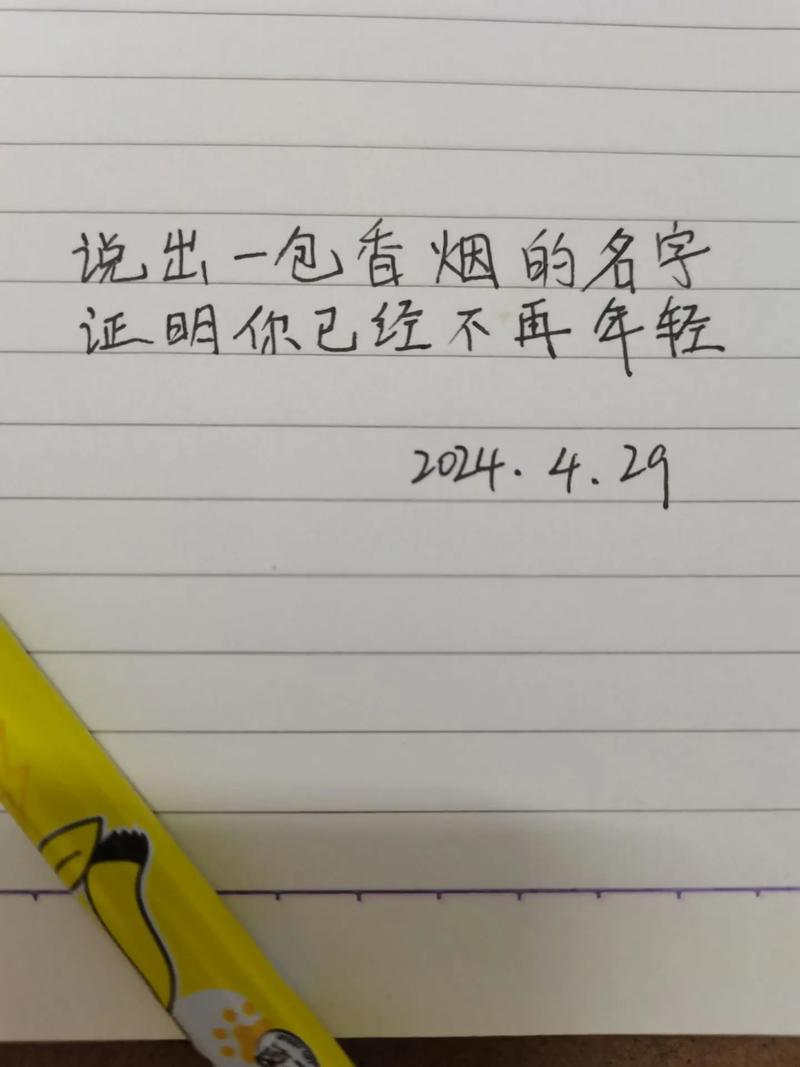 说出一包香烟的名字
证明你已经不再年轻
2024.4.29